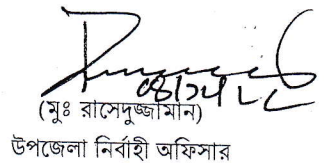 (মুঃ রাসেদুজ্জামান)
উপজেলা নির্বাহী অফিসার